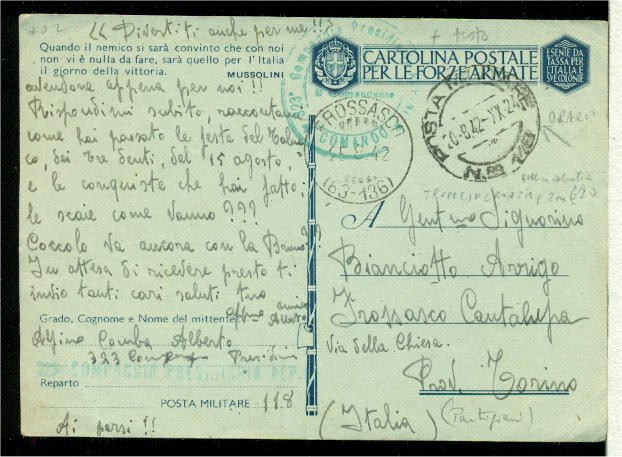 +02
" Divertiti anche per me !!!
Quando il nemico si sarà convinto che con noi
non vi è nulla da fare, sarà quello per l'Italia
il giorno della vittoria.
MUSSOLINI
appena per noi !!
Rispondimi subito,
come hai passato le feste del
dei tre denti, del 15 agosto,
e le conquiste che hai fatto,
le scaie come vanno ???
Coccolo va ancora con la Bruna ??
In attesa di ricevere presto ti
invio tanti cari saluti tuo
amico
Alberto
Grado, Cognome e Nome del mittente
Alpino Comba Alberto
323 Presidiaria
323 COMPAGNIA PRESIDIARIA ALP
Reparto
POSTA MILITARE 118
Ai persi !!
+ testo
CARTOLINA POSTALE
PER LE FORZE ARMATE
ESENTE DA
TASSA PER
L'ITALIA E
SUE COLONIE
Il Comandante
COMANDO
FROSSASCO
42
(63-136)
POSTA MILITARE
20-8-42-XX-24
N
ORARIO
€20
A Gent mo Signorino
Bianciotto Arrigo
Frossasco Cantalupa
Via della Chiesa.
Prov. Torino
(Italia)
(Partigiani)